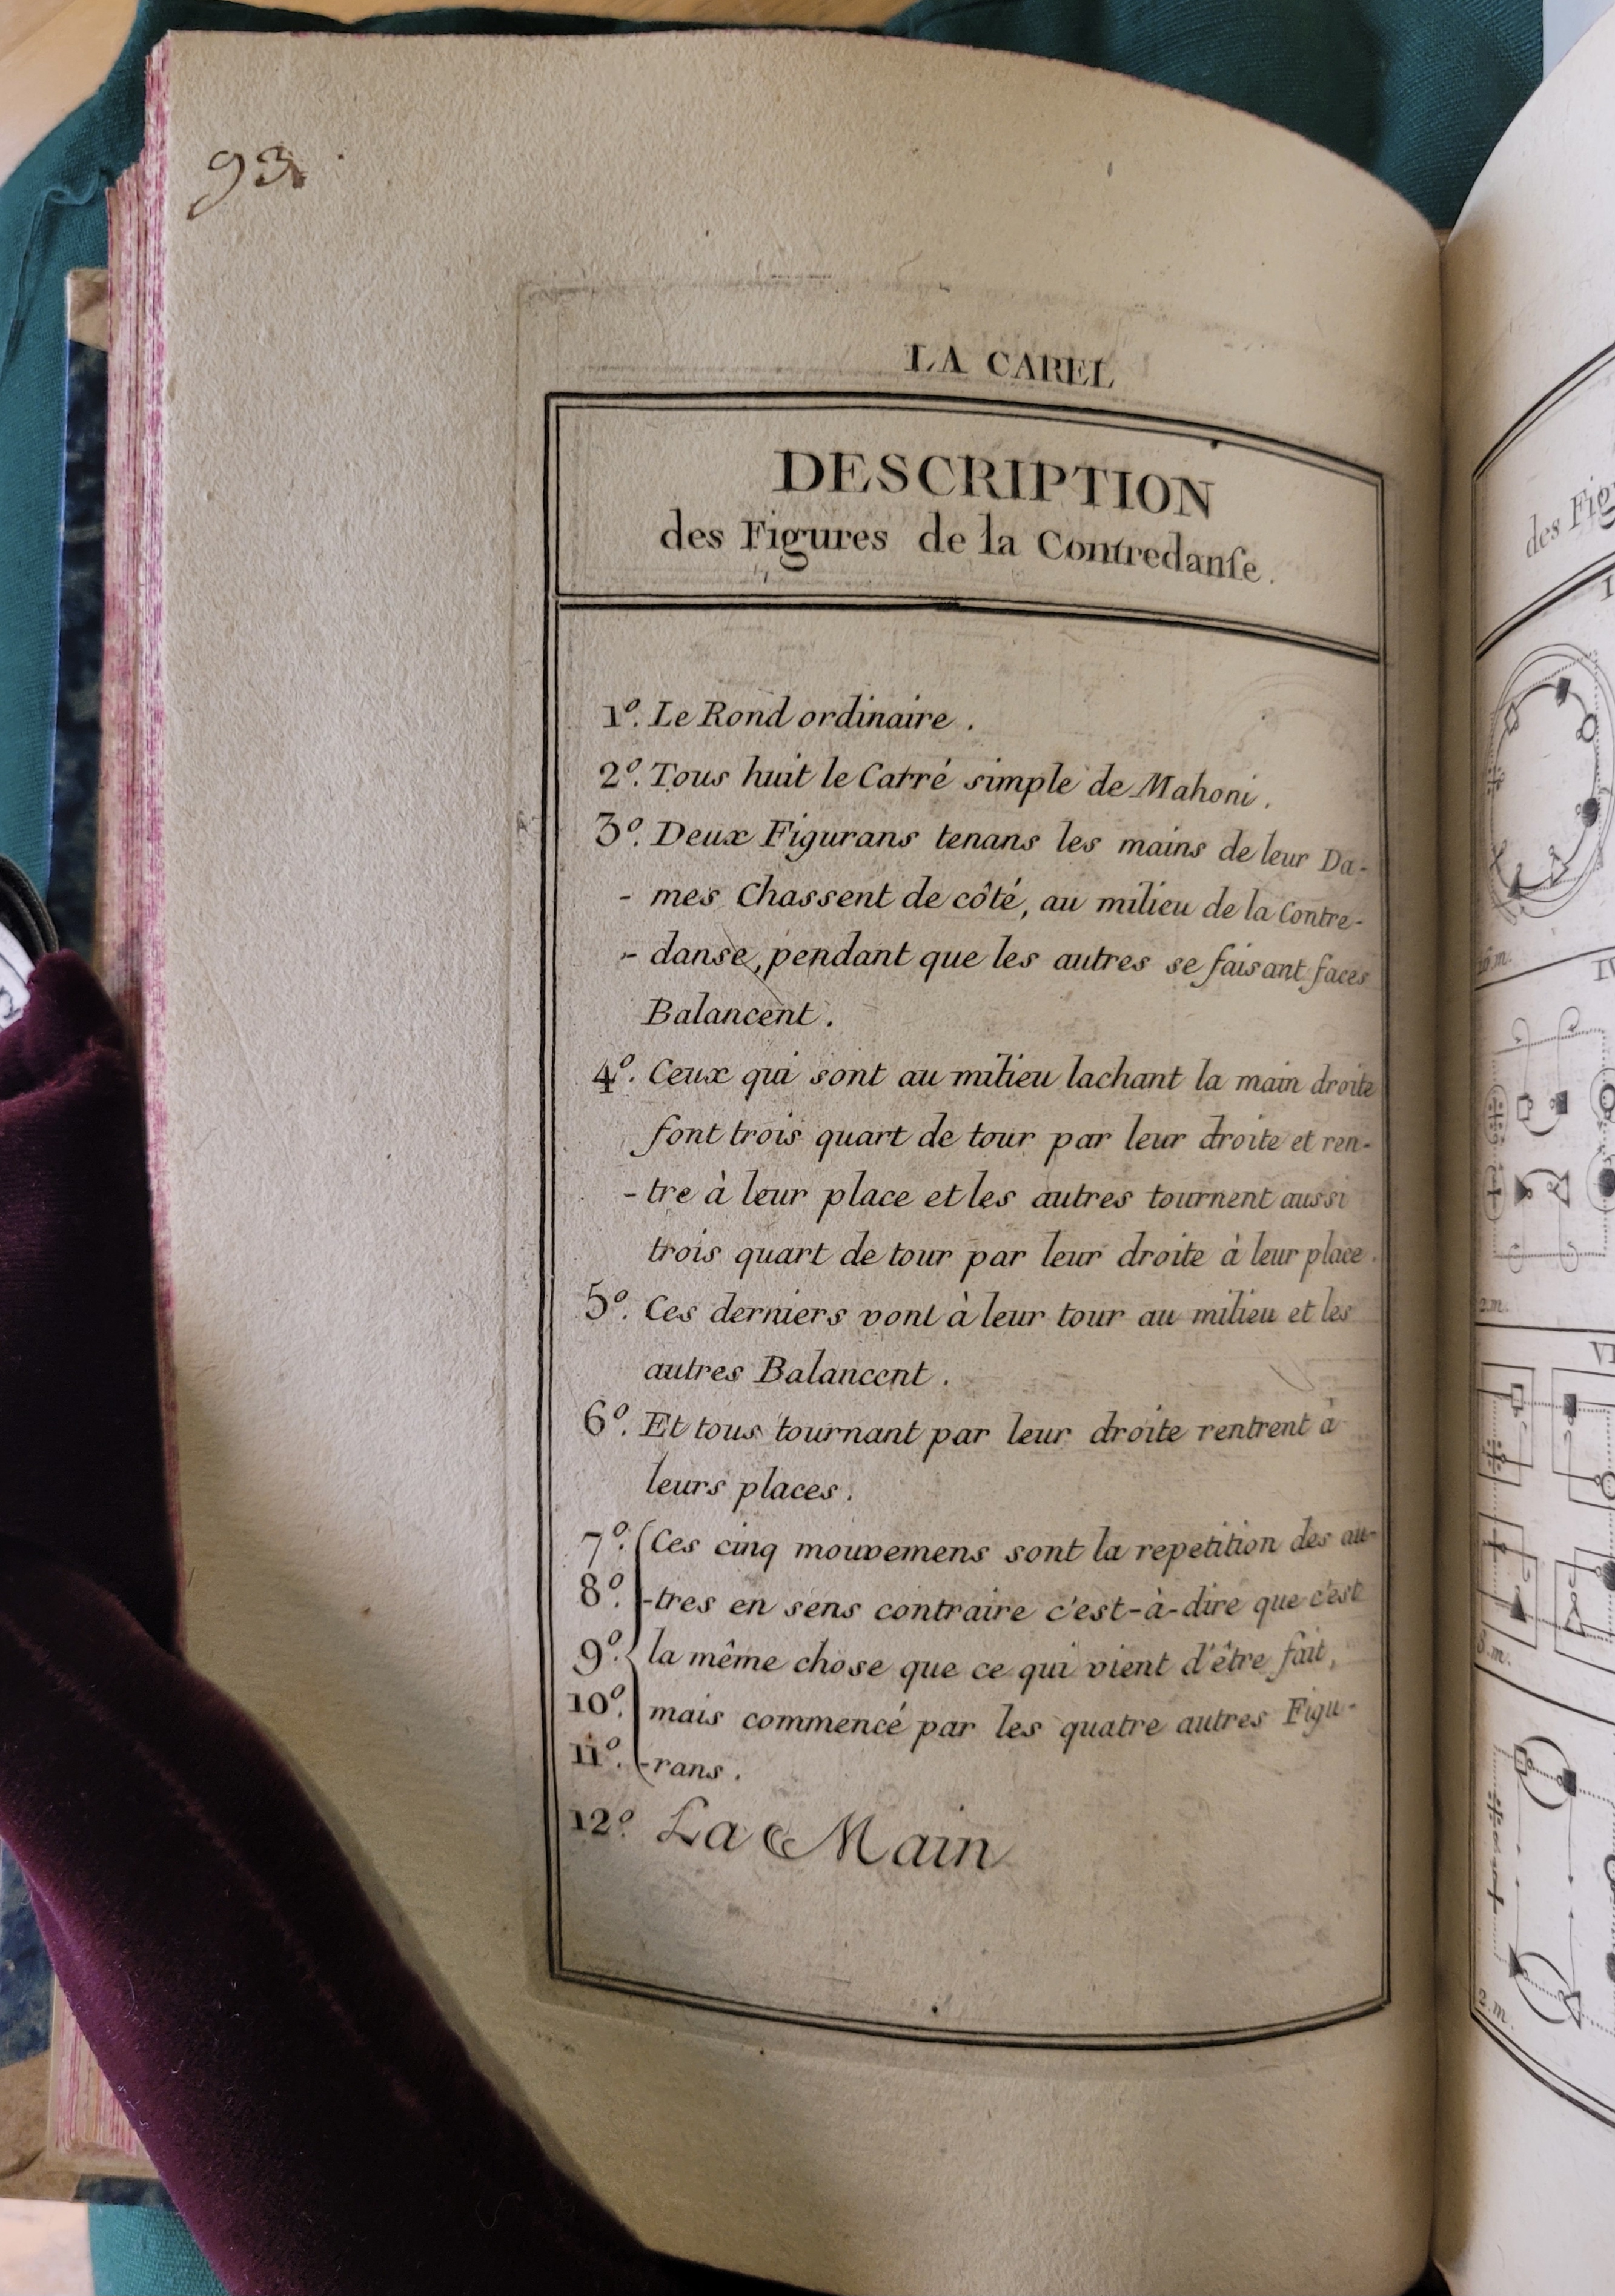 93.
LA CAREL
DESCRIPTION
des Figures de la Contredanſe.
1º. Le Rond ordinaire.
2º. Tous huit le Carré simple de Mahoni.
3º. Deux Figurans tenans les mains de leur Da-
- mes Chassent de côté, au milieu de la Contre-
- danse, pendant que les autres se faisant faces
Balancent.
4º. Ceux qui sont au milieu lachant la main droite
font trois quart de tour par leur droite et ren-
- tre à leur place et les autres tournent aussi
trois quart de tour par leur droite à leur place.
5º. Ces derniers vont à leur tour au milieu et les
autres Balancent.
6º. Et tous tournant par leur droite rentrent à
leurs places.
7º. Ces cinq mouvemens sont la repetition des au-
8º. -tres en sens contraire c'est-à-dire que c'est
9º. la même chose que ce qui vient d'être fait,
10º. mais commencé par les quatre autres Figu-
11º. -rans.
12º. La Main
des Fig
IV
2.m.
VI
8.m.
2.m.